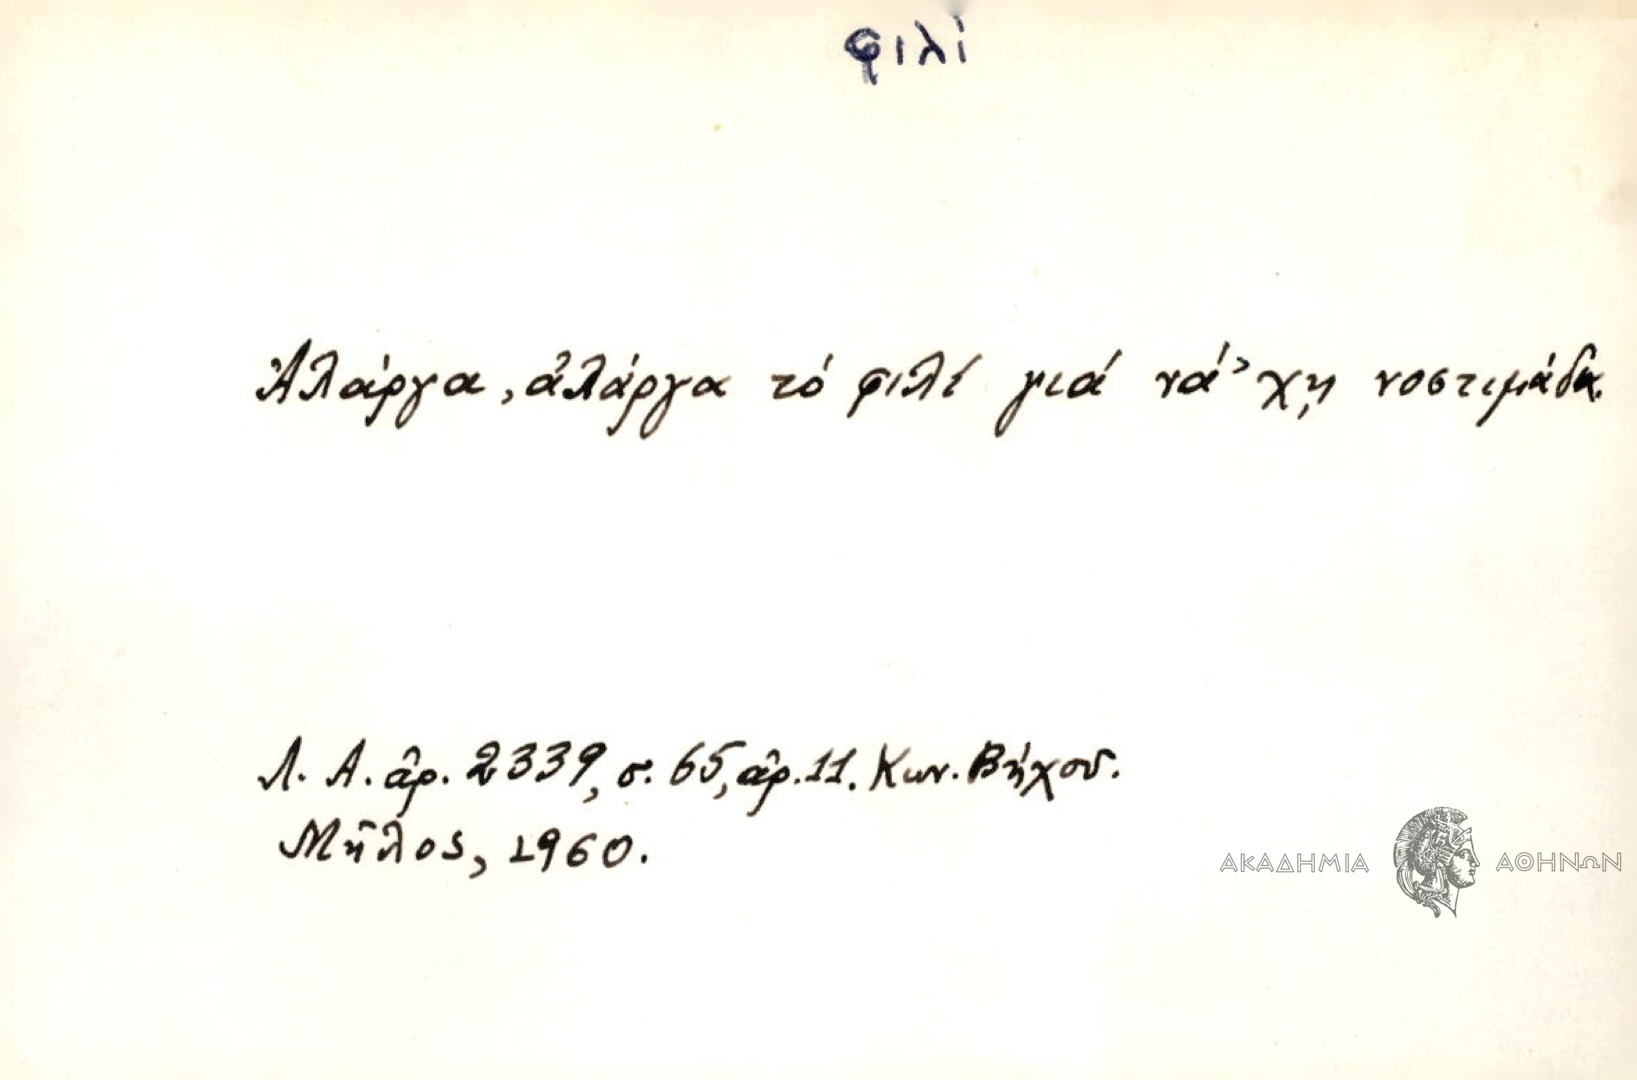 φιλί
Ἀλάργα, ἀλάργα τό φιλί γιά νά 'χῃ νοστιμάδα.
Λ. Α. ἀρ. 2339, σ. 65, ἀρ. 11. Κων. Βήχου.
Μῆλος, 1960.
ΑΚΑΔΗΜΙΑ ΑΘΗΝΩΝ